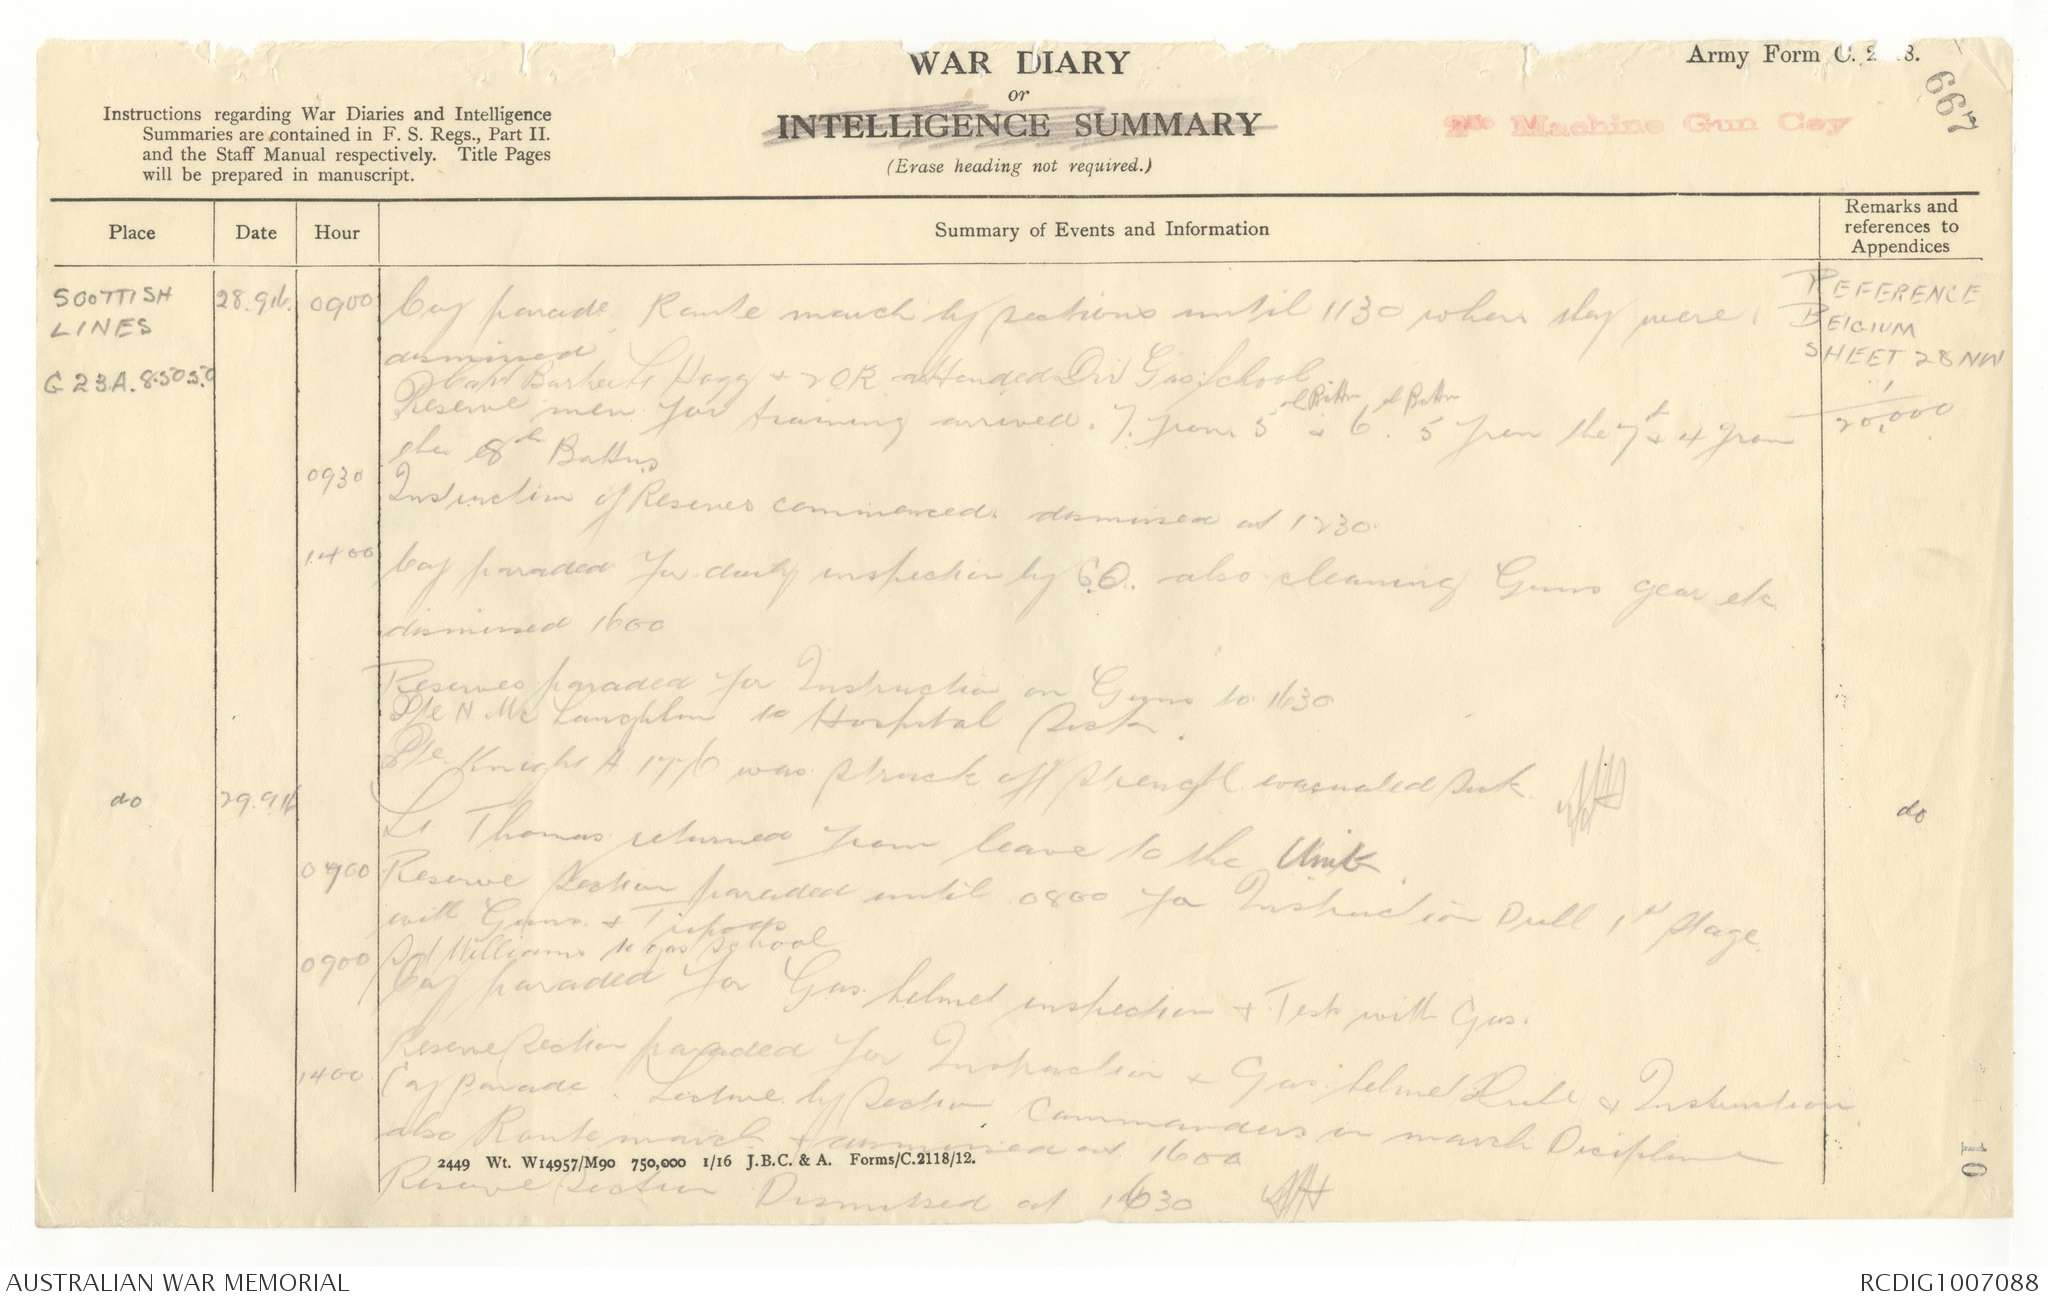 WAR DIARY
or
INTELLIGENCE SUMMARY
(Erase heading not required.)
Army Form C. 2 8.
667
2nd Machine Gun Coy
Instructions regarding War Diaries and Intelligence
Summaries are contained in F. S. Regs., Part II.
and the Staff Manual respectively. Title Pages
will be prepared in manuscript.
Place Date Hour Summary of Events and Information Remarks and
references to
Appendices
SCOTTISH
LINES
G 23A.8.50 5.0
28.9.16. 0900 Coy parade. Route march by sections until 1130 when they were
dismissed
Capt Barker Lt Hogg + 2 OR attended Div Gas School
Reserve men for training arrived. 7 from 5th Battn + 6th Battn 5 from the 7th + 4 from
the 8th Battns
REFERENCE
BELGIUM
SHEET 28 NW
1
20,000
0930 Instruction of Reserves commenced. dismissed at 1230.
1400 Coy paraded for daily inspection by C.O. also cleaning Guns gear etc
dismissed 1600
Reserves paraded for Instruction on Guns to 1630
Pte N McLaughlin to Hospital Sick.
Pte Knight A 1776 was struck off strength evacuated Sick
do 29.9.16 Lt Thomas returned from leave to the Unit. do
0700 Reserve Section paraded until 0800 for Instruction Drill 1st Stage
with Guns + Tripods
Sgt Williams to gas School
0900 Coy paraded for Gas helmet inspection + Test with Gas.
Reserve Section paraded for Instruction + Gas helmet Drill + Instruction
1400 Coy parade. Lecture by Section Commanders in march Discipline
also Route march + dismissed at 1600
2449 Wt. W14957/M90 750,000 1/16 J.B.C. & A. Forms/C.2118/12.
Reserve Section Dismissed at 1630
10
AUSTRALIAN WAR MEMORIAL
RCDIG1007088